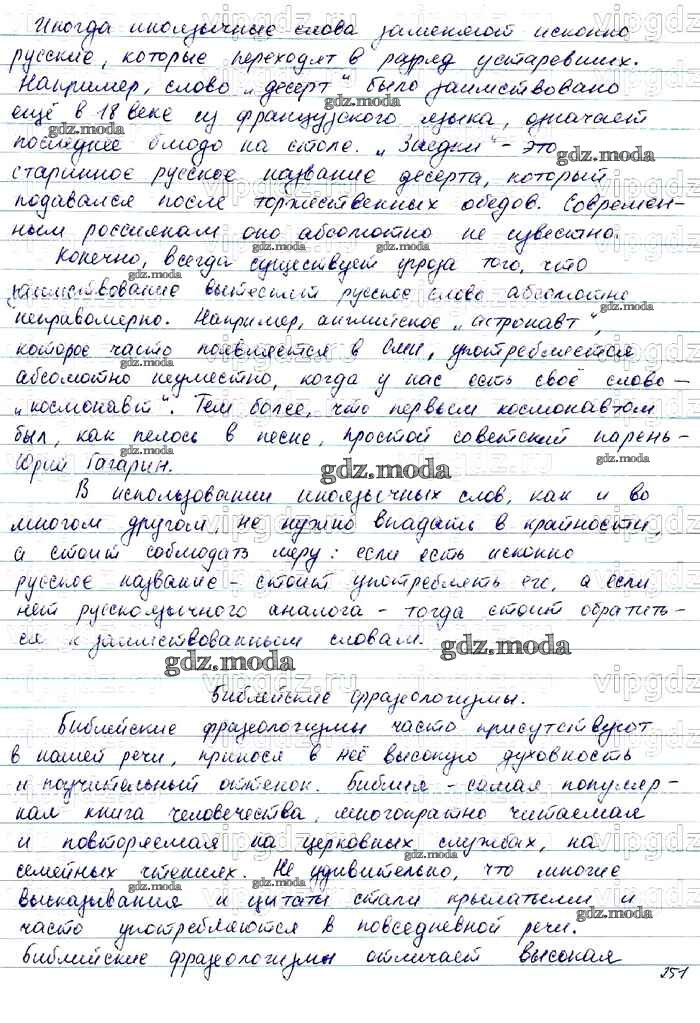 Иногда иноязычные слова заменяют исконно
русские, которые переходят в разряд устаревших.
Например, слово „десерт" было заимствовано
ещё в 18 веке из французского языка, означает
последнее блюдо на столе. „Заедки" - это
старинное русское название десерта, который
подавался после торжественных обедов. Современ-
ным россиянам оно абсолютно не известно.
Конечно, всегда существует угроза того, что
заимствование вытеснит русское слово абсолютно
неправомерно. Например, английское „астронавт",
которое часто появляется в СМИ, употребляется
абсолютно неуместно, когда у нас есть своё слово -
„космонавт". Тем более, что первым космонавтом
был, как пелось в песне, простой советский парень -
Юрий Гагарин.
В использовании иноязычных слов, как и во
многом другом, не нужно впадать в крайности,
а стоит соблюдать меру: если есть исконно
русское название - стоит употреблять его, а если
нет русскоязычного аналога - тогда стоит обратить-
ся к заимствованным словам.
Библейские фразеологизмы.
Библейские фразеологизмы часто присутствуют
в нашей речи, принося в неё высокую духовность
и поучительный оттенок. Библия - самая популяр-
ная книга человечества, многократно читаемая
и повторяемая на церковных службах, на
семейных чтениях. Не удивительно, что многие
высказывания и цитаты стали крылатыми и
часто употребляются в повседневной речи.
Библейские фразеологизмы отличает высокая
251
gdz.moda
vipgdz.ru